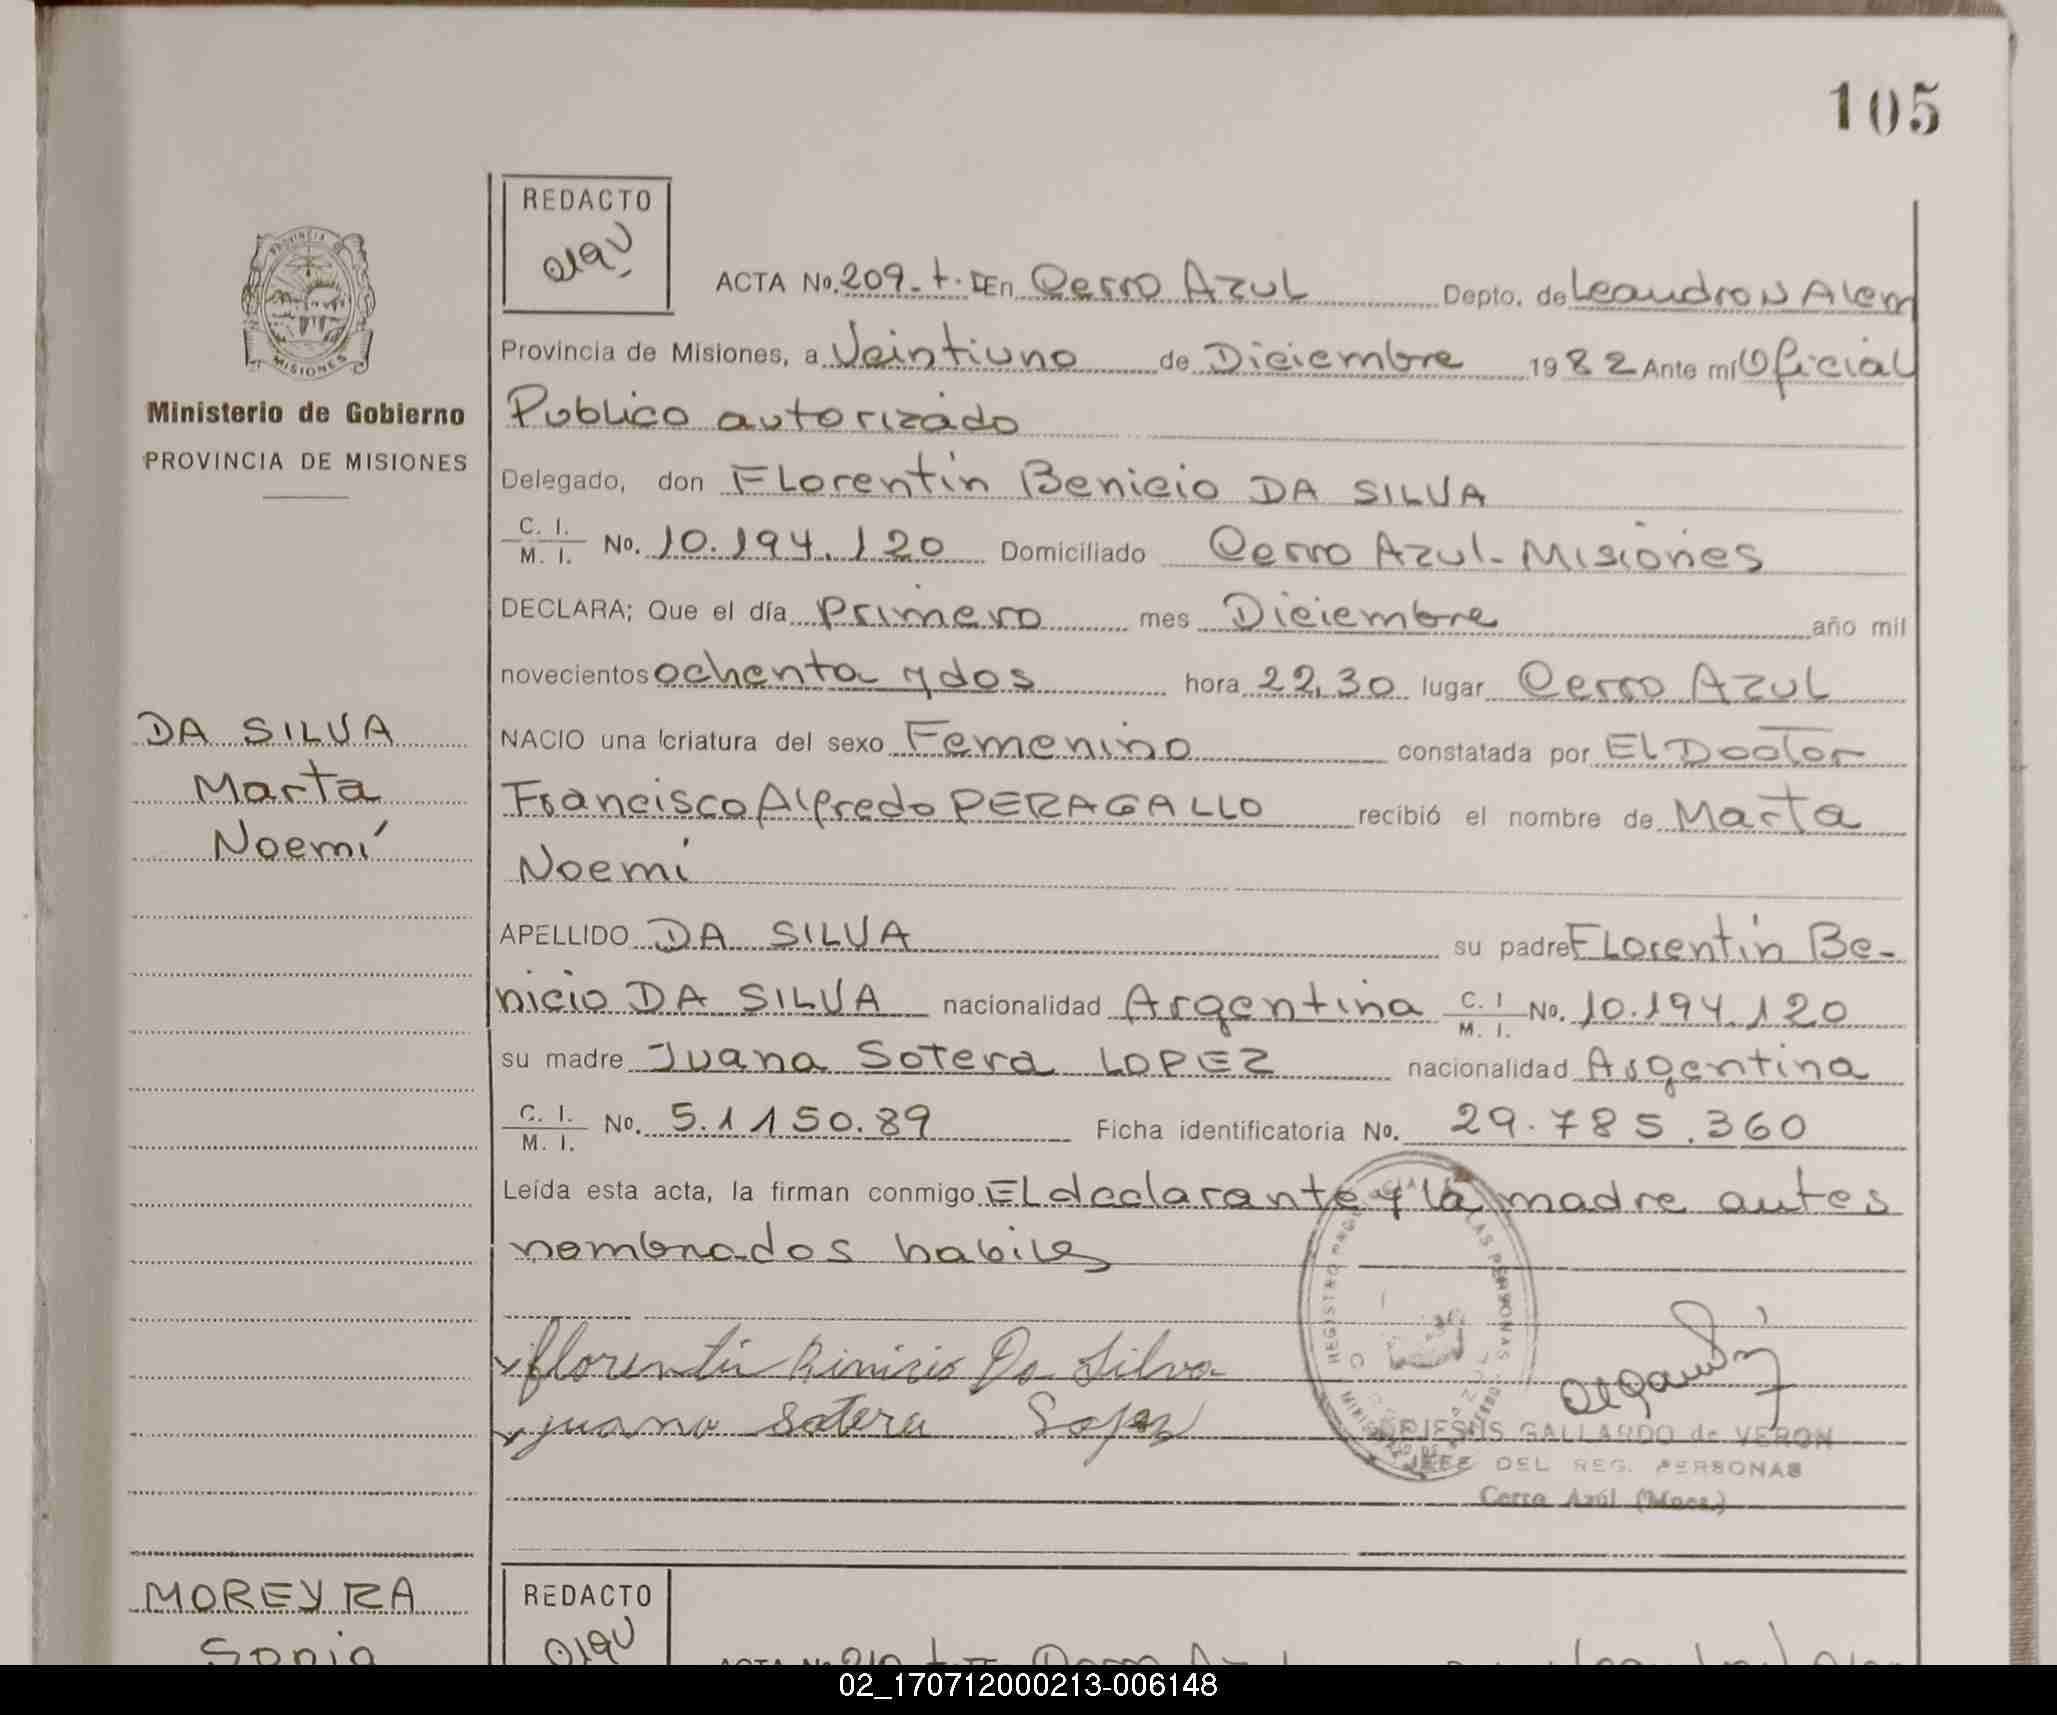 105
REDACTO
PROVINCIA DE
MISIONES
ACTA No. 209.t.I En Cerro Azul Depto. de Leandro N Alem
Ministerio de Gobierno
PROVINCIA DE MISIONES
Provincia de Misiones, a Veintiuno de Diciembre 1982 Ante mí Oficial
Publico autorizado
Delegado, don Florentin Benicio DA SILVA
C. I. M. I. No. 10.194.120 Domiciliado Cerro Azul-Misiones
DECLARA; Que el día Primero mes Diciembre año mil
novecientos ochenta y dos hora 22,30 lugar Cerro Azul
DA SILVA
Marta
Noemí
NACIO una criatura del sexo Femenino constatada por El Doctor
Francisco Alfredo PERAGALLO recibió el nombre de Marta
Noemi
APELLIDO DA SILVA su padre Florentin Be-
nicio DA SILVA nacionalidad Argentina C. I M. I. No. 10.194.120
su madre Juana Sotera LOPEZ nacionalidad Argentina
C. I. M. I. No. 5.1150.89 Ficha identificatoria No. 29.785.360
Leída esta acta, la firman conmigo El declarante y la madre antes
nombrados habiles
florentin Binicio Da Silva
juana Sotera Lopez
JESUS GALLARDO de VERON
JEFE DEL REG. PERSONAS
Cerro Azúl (Mnes.)
MOREYRA
Sonia
REDACTO
02_170712000213-006148